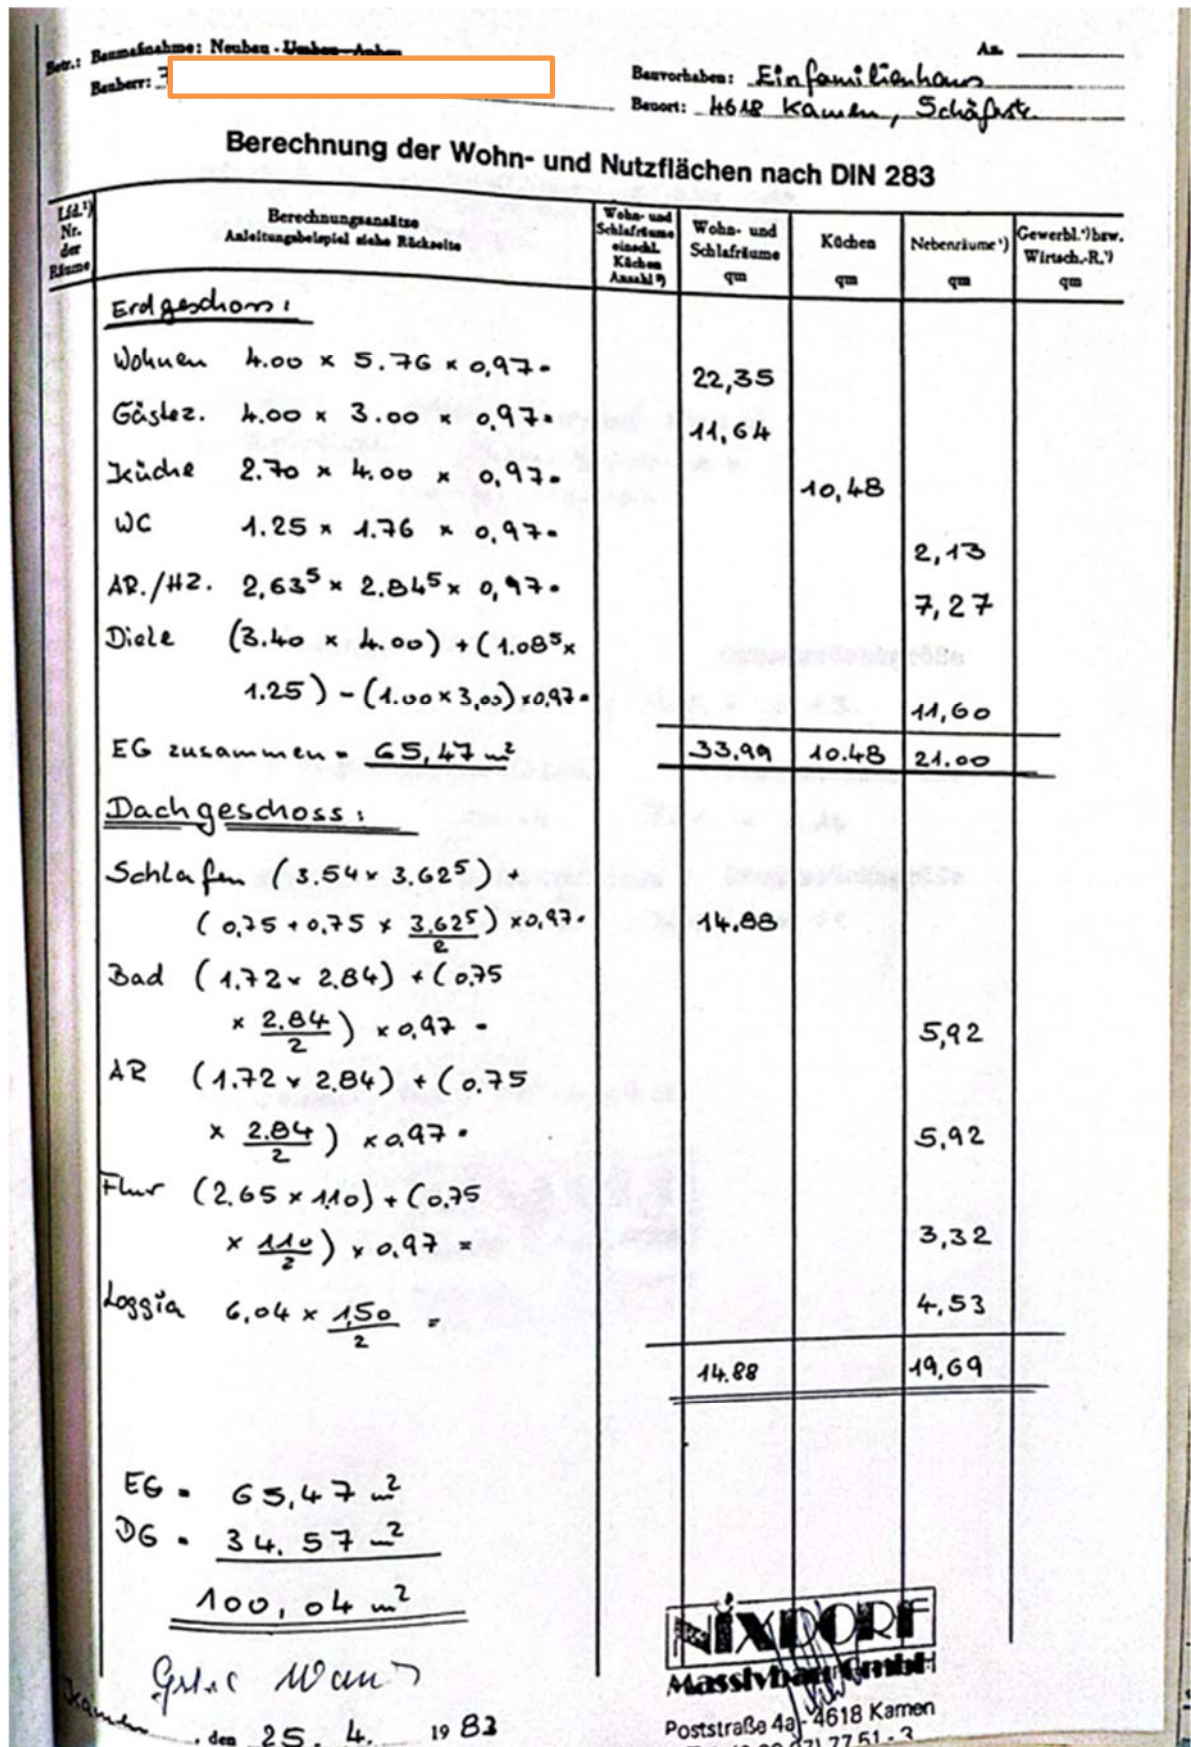 Betr.: Baumaßnahme: Neubau - Umbau - Anbau
An
Bauherr:
Bauvorhaben: Einfamilienhaus
Bauort: 4618 Kamen, Schäfstr.
Berechnung der Wohn- und Nutzflächen nach DIN 283
Lfd.¹) Nr. der Räume
Berechnungsansätze
Anleitungsbeispiel siehe Rückseite
Wohn- und Schlafräume einschl. Küchen Anzahl ²)
Wohn- und Schlafräume qm
Küchen qm
Nebenräume ³) qm
Gewerbl. ⁴) bzw. Wirtsch.-R. ⁵) qm
Erdgeschoss:
Wohnen 4.00 x 5.76 x 0,97 = 22,35
Gästez. 4.00 x 3.00 x 0,97 = 11,64
Küche 2.70 x 4.00 x 0,97 = 10,48
WC 1.25 x 1.76 x 0,97 = 2,13
AR./HZ. 2,63⁵ x 2.84⁵ x 0,97 = 7,27
Diele (3.40 x 4.00) + (1.08⁵ x
1.25) - (1.00 x 3,00) x 0,97 = 11,60
EG zusammen = 65,47 m² 33.99 10.48 21.00
Dachgeschoss:
Schlafen (3.54 x 3.62⁵) +
(0,75 + 0,75 x 3,62⁵/2) x 0,97 = 14,88
Bad (1.72 x 2.84) + (0.75
x 2.84/2) x 0,97 = 5,92
AR (1.72 x 2.84) + (0.75
x 2.84/2) x 0,97 = 5,92
Flur (2.65 x 1.10) + (0,75
x 1.10/2) x 0,97 = 3,32
Loggia 6,04 x 1,50/2 = 4,53
14.88 19,69
EG = 65,47 m²
DG = 34.57 m²
100,04 m²
NIXDORF
Massivbau GmbH
Kamen, den 25. 4. 1983
Poststraße 4a - 4618 Kamen
77 51 - 3